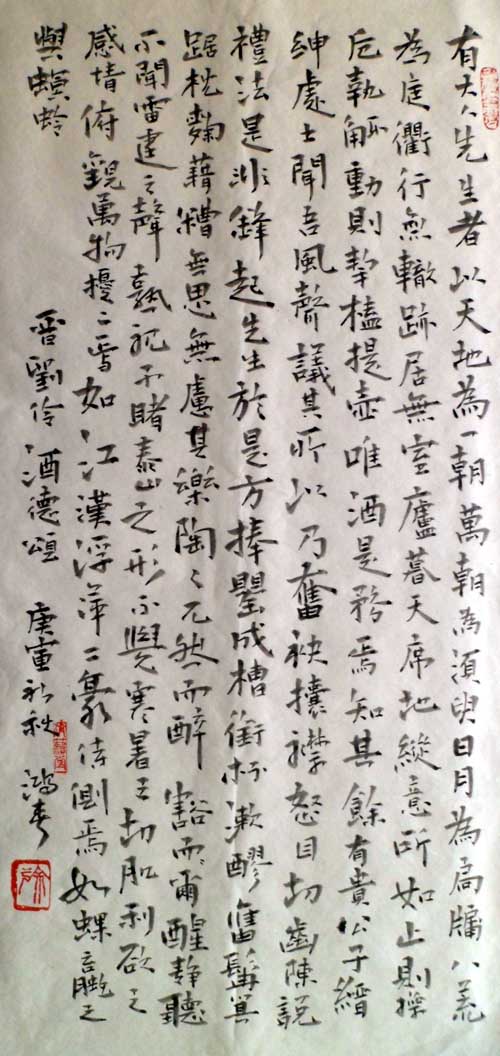 有大人先生者以天地為一朝萬朝為須臾日月為扃牖八荒
為庭衢行無轍跡居無室廬暮天席地縱意所如止則操
卮執觚動則挈榼提壺唯酒是務焉知其餘有貴公子縉
紳處士聞吾風聲議其所以乃奮袂攘襟怒目切齒陳說
禮法是非鋒起先生於是方捧罌成槽銜杯漱醪奮髯箕
踞枕麴藉糟無思無慮其樂陶々兀然而醉豁而爾醒靜聽
不聞雷霆之聲熟視不睹泰山之形不覺寒暑之切肌利欲之
感情俯觀萬物擾々焉如江漢浮萍二豪侍側焉如蜾蠃之
與螟蛉
晉劉伶酒德頌 庚寅初秋 鴻春
徐